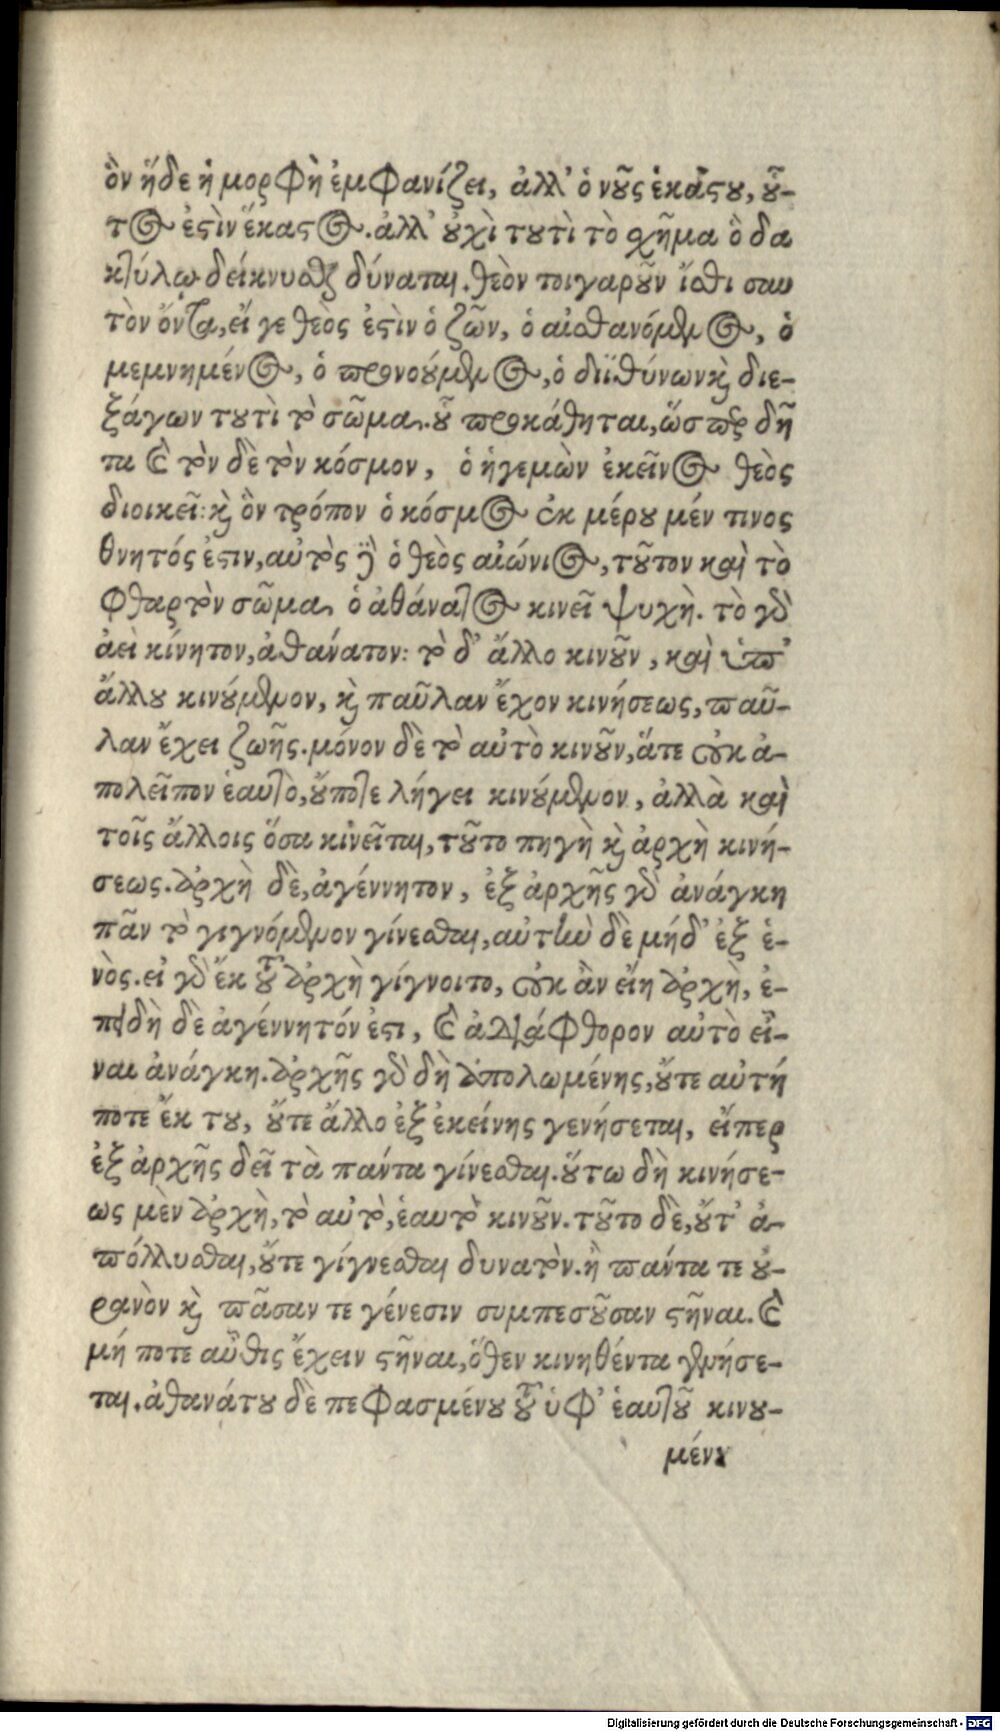 ὃν ἥδε ἡ μορφὴ ἐμφανίζει, ἀλλ’ ὁ νοῦς ἑκάστου, οὗ-
τος ἐστὶν ἕκαστος. ἀλλ’ οὐχὶ τουτὶ τὸ σχῆμα ὃ δα
κτύλῳ δείκνυσθαι δύναται. θεὸν τοιγαροῦν ἴσθι σαυ
τὸν ὄντα, εἴ γε θεὸς ἐστὶν ὁ ζῶν, ὁ αἰσθανόμενος, ὁ
μεμνημένος, ὁ προνούμενος, ὁ διϊθύνων καὶ διε-
ξάγων τουτὶ τὸ σῶμα. οὗ προκάθηται, ὥσπερ δῆ
τα καὶ τὸν δὲ τὸν κόσμον, ὁ ἡγεμὼν ἐκεῖνος θεὸς
διοικεῖ: καὶ ὃν τρόπον ὁ κόσμος ἐκ μέρου μέν τινος
θνητός ἐστιν, αὐτὸς δὲ ὁ θεὸς αἰώνιος, τοῦτον καὶ τὸ
φθαρτὸν σῶμα ὁ ἀθάνατος κινεῖ ψυχὴ. τὸ γὰρ
ἀεὶ κίνητον, ἀθανάτον: τὸ δ’ ἄλλο κινοῦν, καὶ ὑπ’
ἄλλου κινούμενον, καὶ παῦλαν ἔχον κινήσεως, παῦ-
λαν ἔχει ζωῆς. μόνον δὲ τὸ αὐτὸ κινοῦν, ἅτε οὐκ ἀ-
πολεῖπον ἑαυτὸ, οὔποτε λήγει κινούμενον, ἀλλὰ καὶ
τοῖς ἄλλοις ὅσα κινεῖται, τοῦτο πηγὴ καὶ ἀρχὴ κινή-
σεως. ἀρχὴ δὲ, ἀγέννητον, ἐξ ἀρχῆς γὰρ ἀνάγκη
πᾶν τὸ γιγνόμενον γίνεσθαι, αὐτὴν δὲ μήδ’ ἐξ ἑ-
νὸς. εἰ γὰρ ἔκ του ἀρχὴ γίγνοιτο, οὐκ ἂν εἴη ἀρχὴ, ἐ-
πειδὴ δὲ ἀγέννητόν ἐστι, καὶ ἀδιάφθορον αὐτὸ εἶ-
ναι ἀνάγκη. ἀρχῆς γὰρ δὴ ἀπολωμένης, οὔτε αὐτή
ποτε ἔκ του, οὔτε ἄλλο ἐξ ἐκείνης γενήσεται, εἴπερ
ἐξ ἀρχῆς δεῖ τὰ πάντα γίνεσθαι. οὕτω δὴ κινήσε-
ως μὲν ἀρχὴ, τὸ αὐτὸ, ἑαυτὸ κινοῦν. τοῦτο δὲ, οὔτ’ ἀ-
πόλλυσθαι, οὔτε γίγνεσθαι δυνατὸν. ἢ πάντα τε οὐ-
ρανὸν καὶ πᾶσαν τε γένεσιν συμπεσοῦσαν στῆναι. καὶ
μή ποτε αὖθις ἔχειν στῆναι, ὅθεν κινηθέντα γενήσε-
ται. ἀθανάτου δὲ πεφασμένου τοῦ ὑφ’ ἑαυτοῦ κινου-
μένου
Digitalisierung gefördert durch die Deutsche Forschungsgemeinschaft - DFG